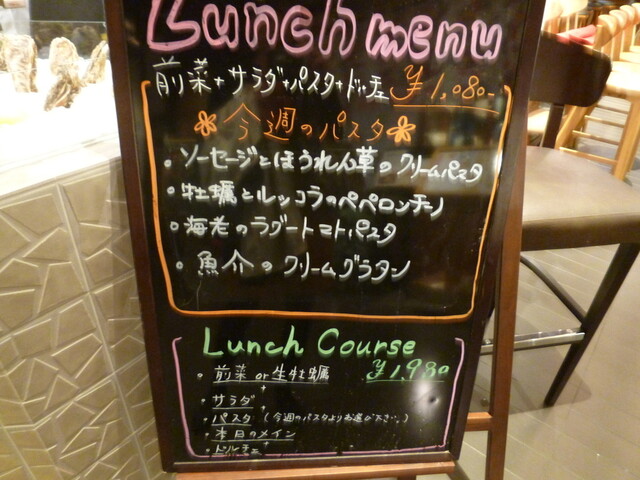 Lunch menu
前菜+サラダ+パスタ+ドルチェ ¥1,080-
今週のパスタ
・ソーセージとほうれん草のクリームパスタ
・牡蠣とルッコラのペペロンチーノ
・海老のラグートマトパスタ
・魚介のクリームグラタン
Lunch Course
・前菜 or 生牡蠣 ¥1,980
+
・サラダ
+
・パスタ (今週のパスタよりお選び下さい。)
・本日のメイン
+
・ドルチェ